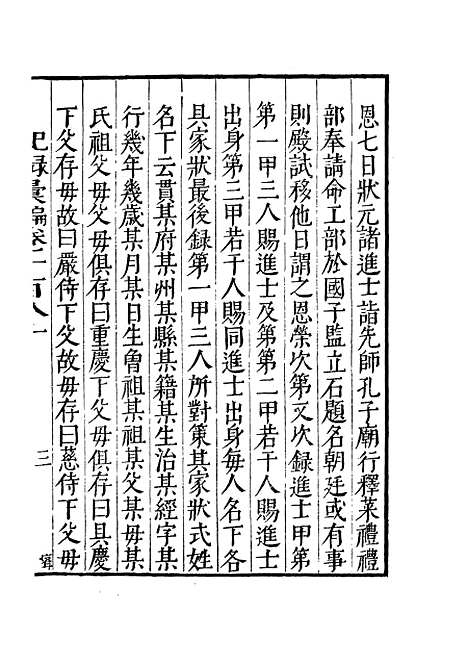 恩七日狀元諸進士詣先師孔子廟行釋菜禮禮
部奉請命工部於國子監立石題名朝廷或有事
則殿試移他日謂之恩榮次第又次錄進士甲第
第一甲三人賜進士及第第二甲若干人賜進士
出身第三甲若干人賜同進士出身每人名下各
具家狀最後録第一甲三人所對策其家狀式姓
名下云貫某府某州某縣某籍某生治某經字某
行幾年幾歲某月某日生曾祖某祖某父某母某
氏祖父母父母俱存曰重慶下父母俱存曰具慶
下父存母故曰嚴侍下父故母存曰慈侍下父母
紀録彙編卷一百八十一 三